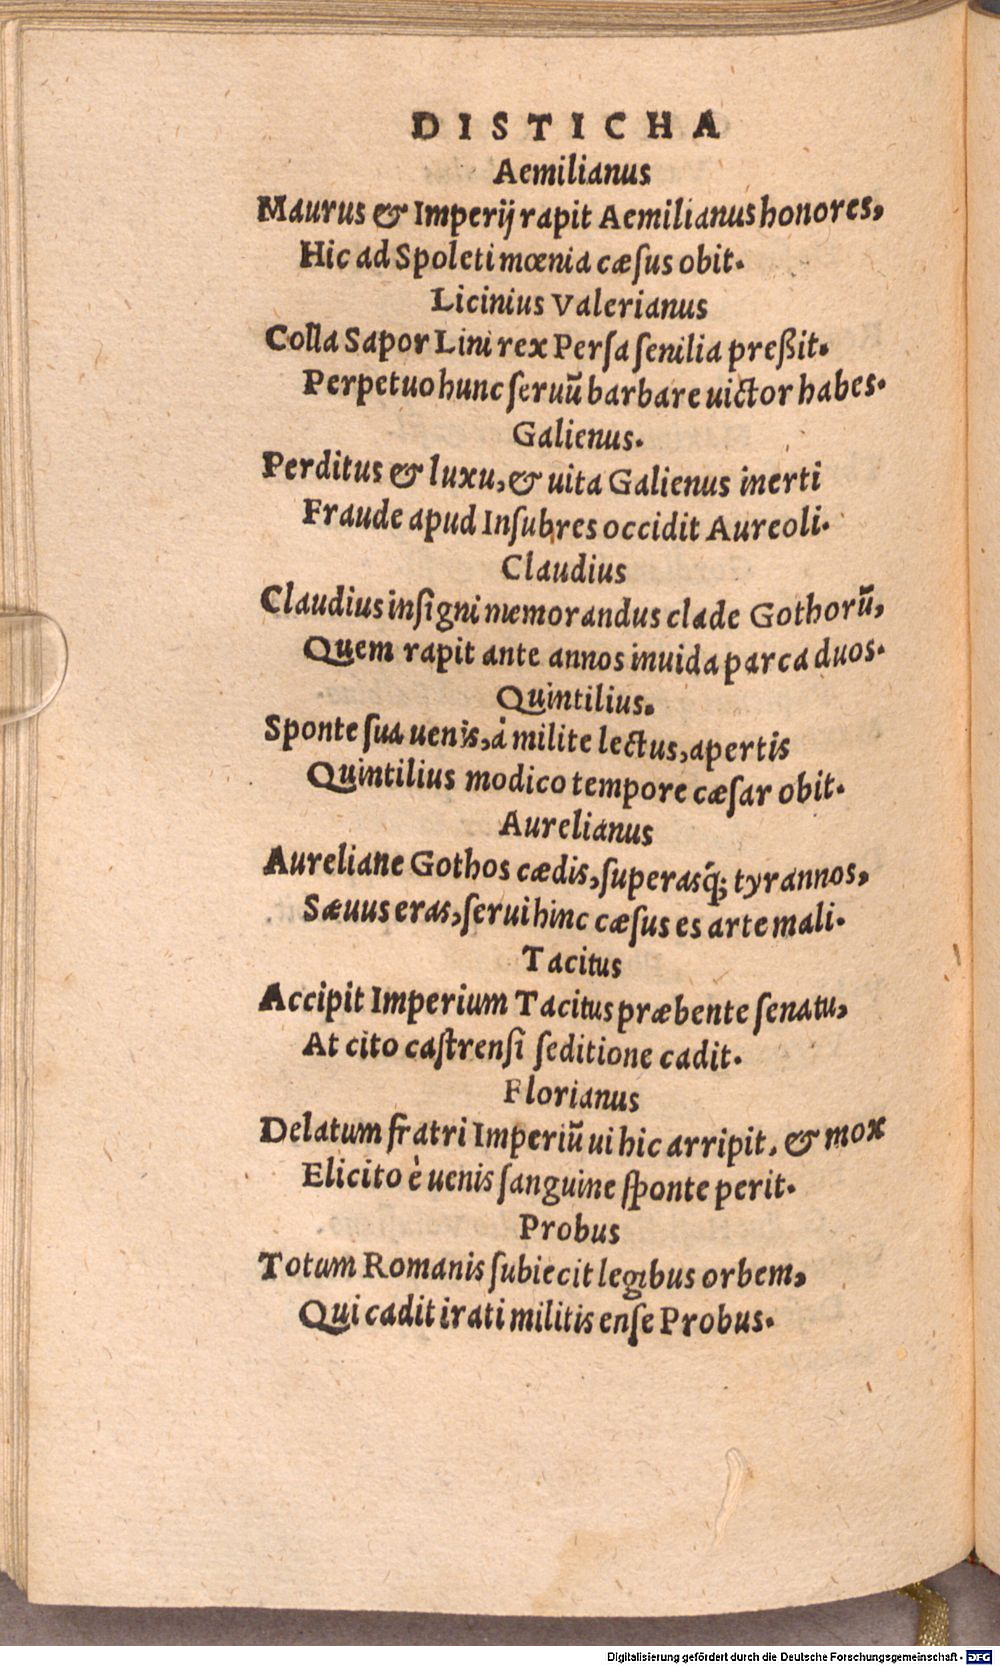 DISTICHA
Aemilianus
Maurus & Imperij rapit Aemilianus honores,
Hic ad Spoleti mœnia cæſus obit.
Licinius Valerianus
Colla Sapor Lini rex Perſa ſenilia preßit.
Perpetuo hunc ſeruũ barbare uictor habes.
Galienus.
Perditus & luxu, & uita Galienus inerti
Fraude apud Inſubres occidit Aureoli.
Claudius
Claudius inſigni memorandus clade Gothorũ,
Quem rapit ante annos inuida parca duos.
Quintilius.
Sponte ſua uenis, à milite lectus, apertis
Quintilius modico tempore cæſar obit.
Aurelianus
Aureliane Gothos cædis, ſuperasq́; tyrannos,
Sæuus eras, ſerui hinc cæſus es arte mali.
Tacitus
Accipit Imperium Tacitus præbente ſenatu,
At cito caſtrenſi ſeditione cadit.
Florianus
Delatum fratri Imperiũ ui hic arripit, & mox
Elicito è uenis ſanguine ſponte perit.
Probus
Totum Romanis ſubiecit legibus orbem,
Qui cadit irati militis enſe Probus.
Digitalisierung gefördert durch die Deutsche Forschungsgemeinschaft - DFG